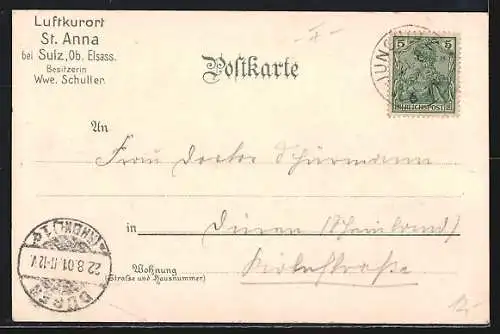 Luftkurort
St. Anna
bei Sulz, Ob. Elsass.
Besitzerin
Wwe. Schuller.
Postkarte
5 5
REICHSPOST
JUNG
An
Frau Doctor Schürmann
in Düren (Rheinland)
Wohnung
(Straße und Hausnummer)
DÜREN
(RHEINL.) 1
22.8.01. 11-12V.